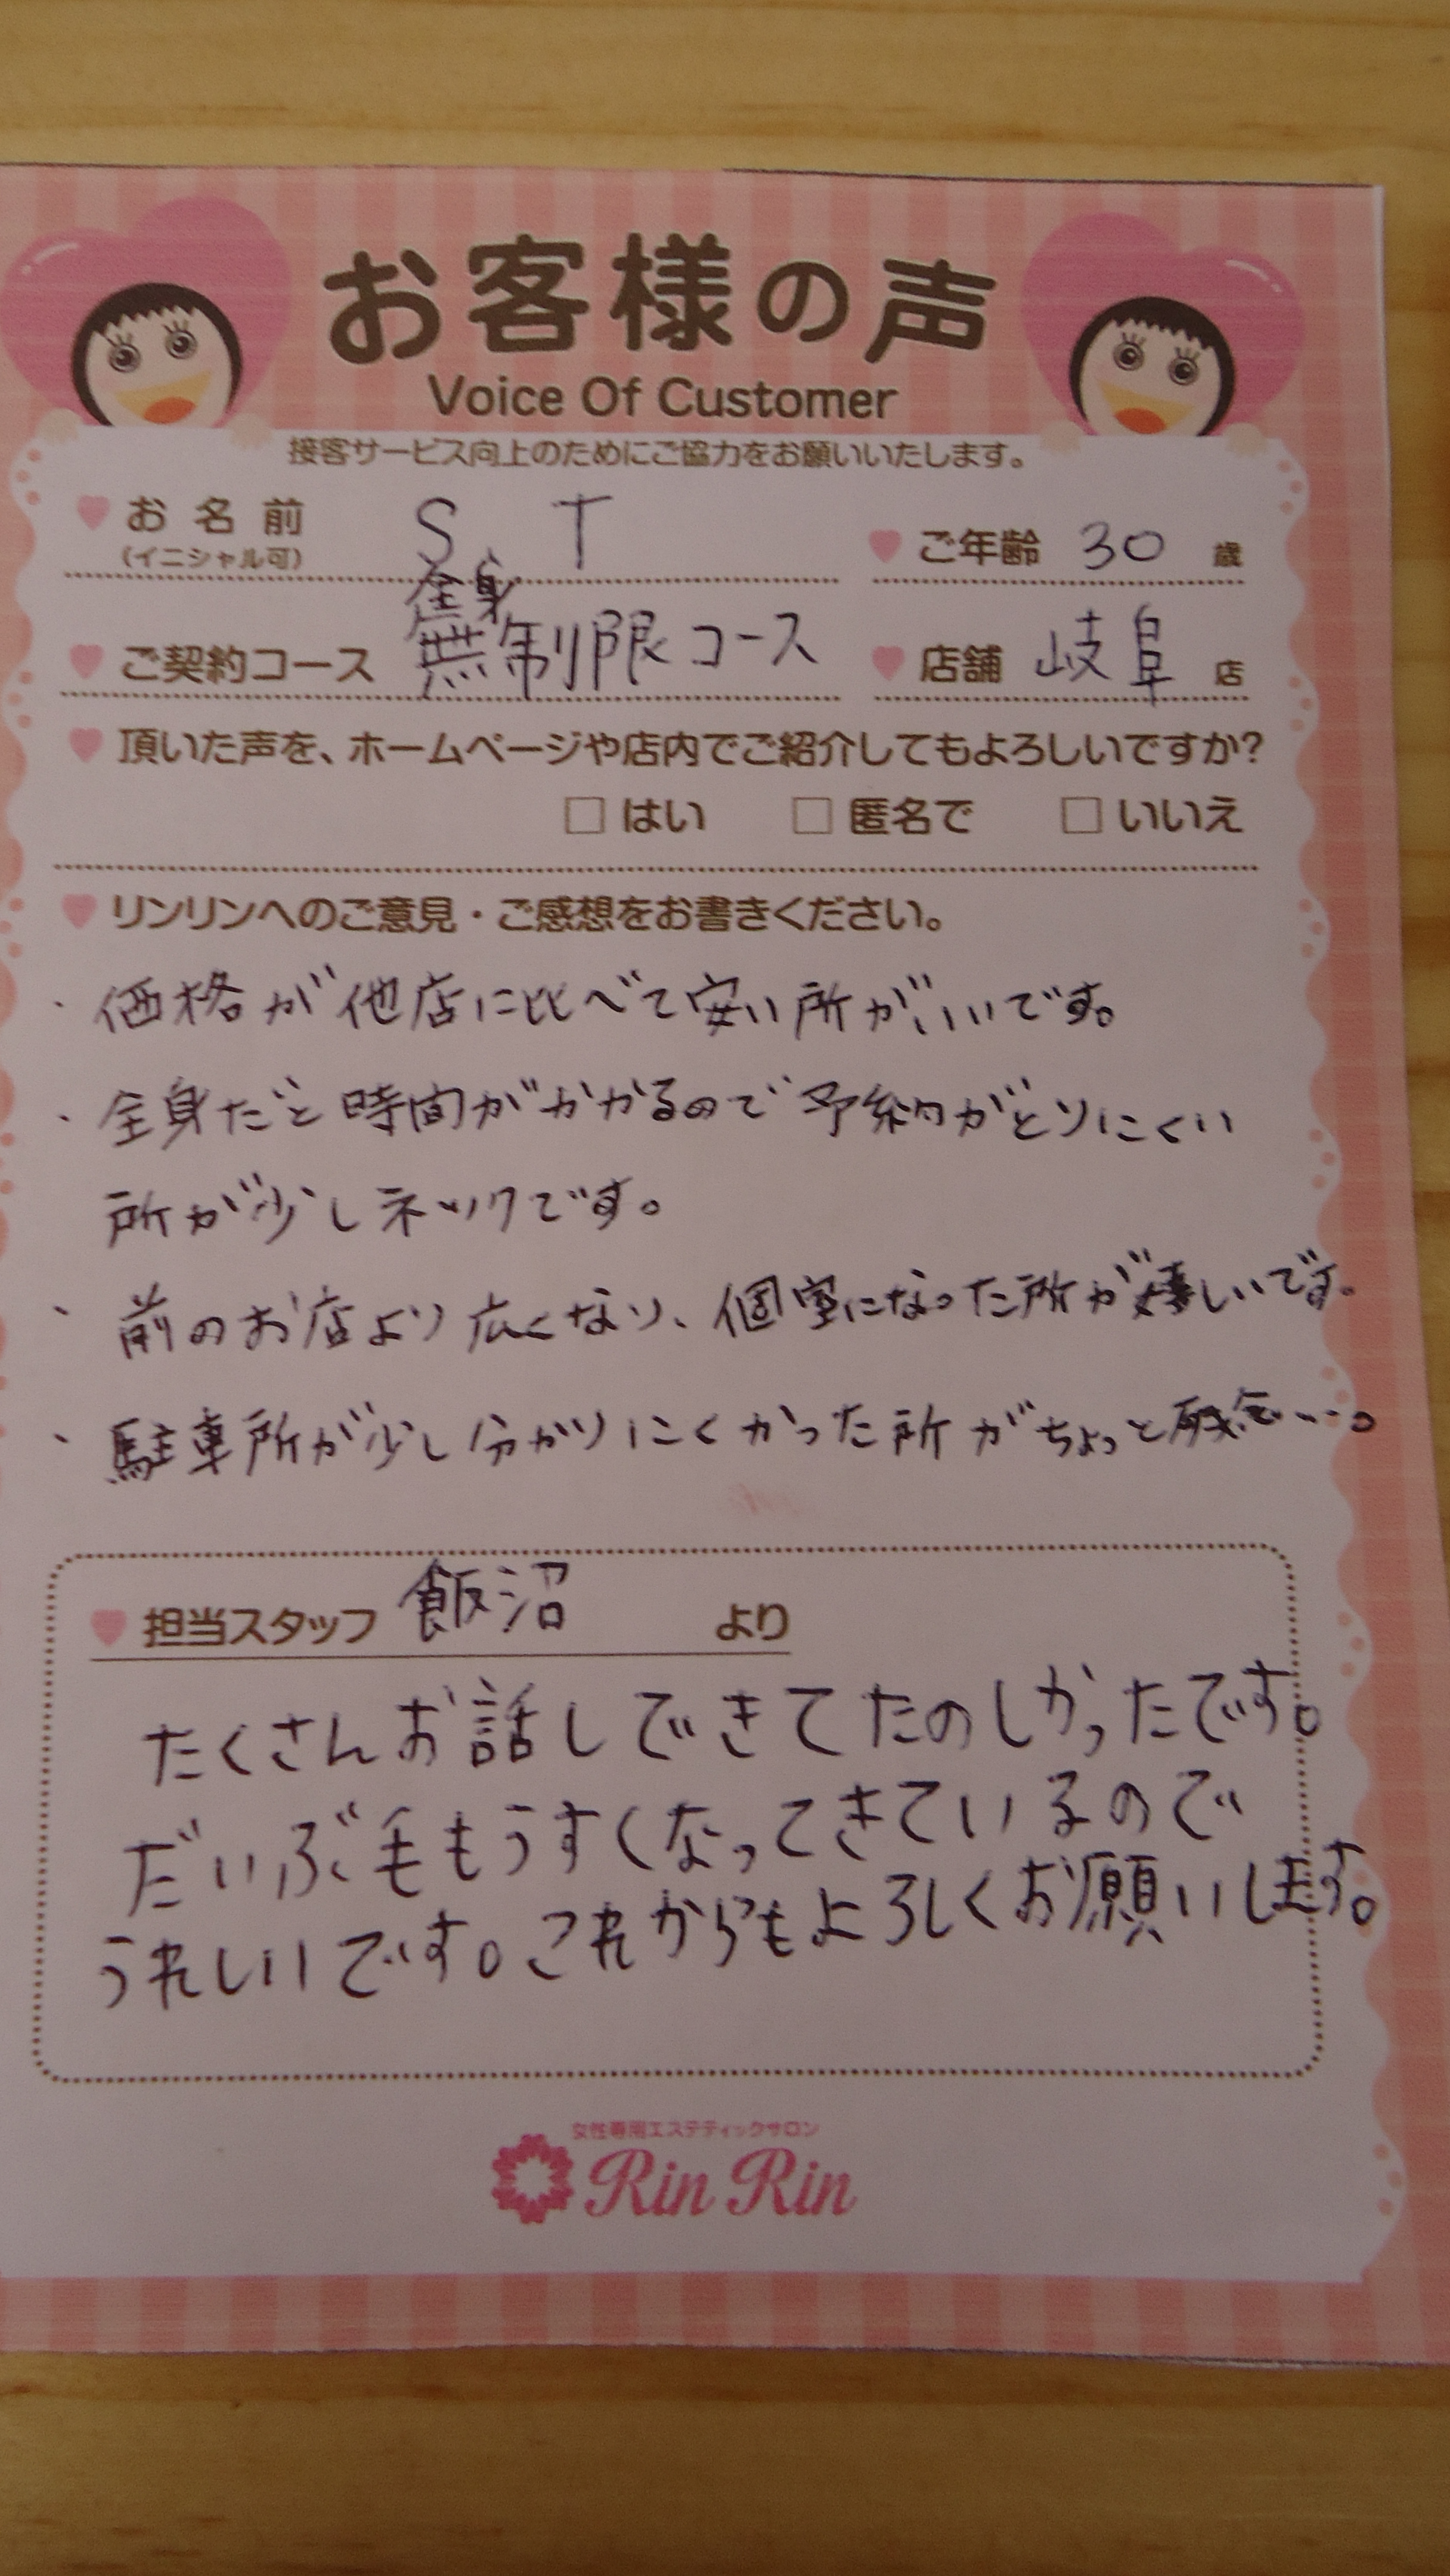 お客様の声
Voice Of Customer
接客サービス向上のためにご協力をお願いいたします。
お名前 S、T ご年齢 30 歳
(イニシャル可)
全身
ご契約コース 無制限コース 店舗 岐阜 店
頂いた声を、ホームページや店内でご紹介してもよろしいですか?
□ はい □ 匿名で □ いいえ
リンリンへのご意見・ご感想をお書きください。
・価格が他店に比べて安い所がいいです。
・全身だと時間がかかるので予約がとりにくい
所が少しネックです。
・前のお店より広くなり、個室になった所が嬉しいです。
・駐車所が少し分かりにくかった所がちょっと残念…。
担当スタッフ 飯沼 より
たくさんお話しできてたのしかったです。
だいぶ毛もうすくなってきているので
うれしいです。これからもよろしくお願いします。
女性専用エステティックサロン
Rin Rin